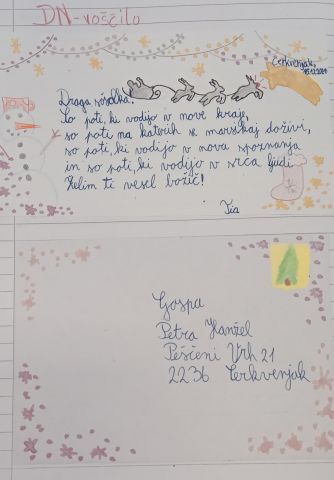 DN-voščilo
Cerkvenjak,
Draga sošolka!
So poti, ki vodijo v nove kraje,
so poti na katerih se marsikaj doživi,
so poti, ki vodijo v nova spoznanja
in so poti, ki vodijo v srca ljudi
Želim ti vesel božič!
Tia
Gospa
Petra Hanžel
Peščeni Vrh 21
2236 Cerkvenjak